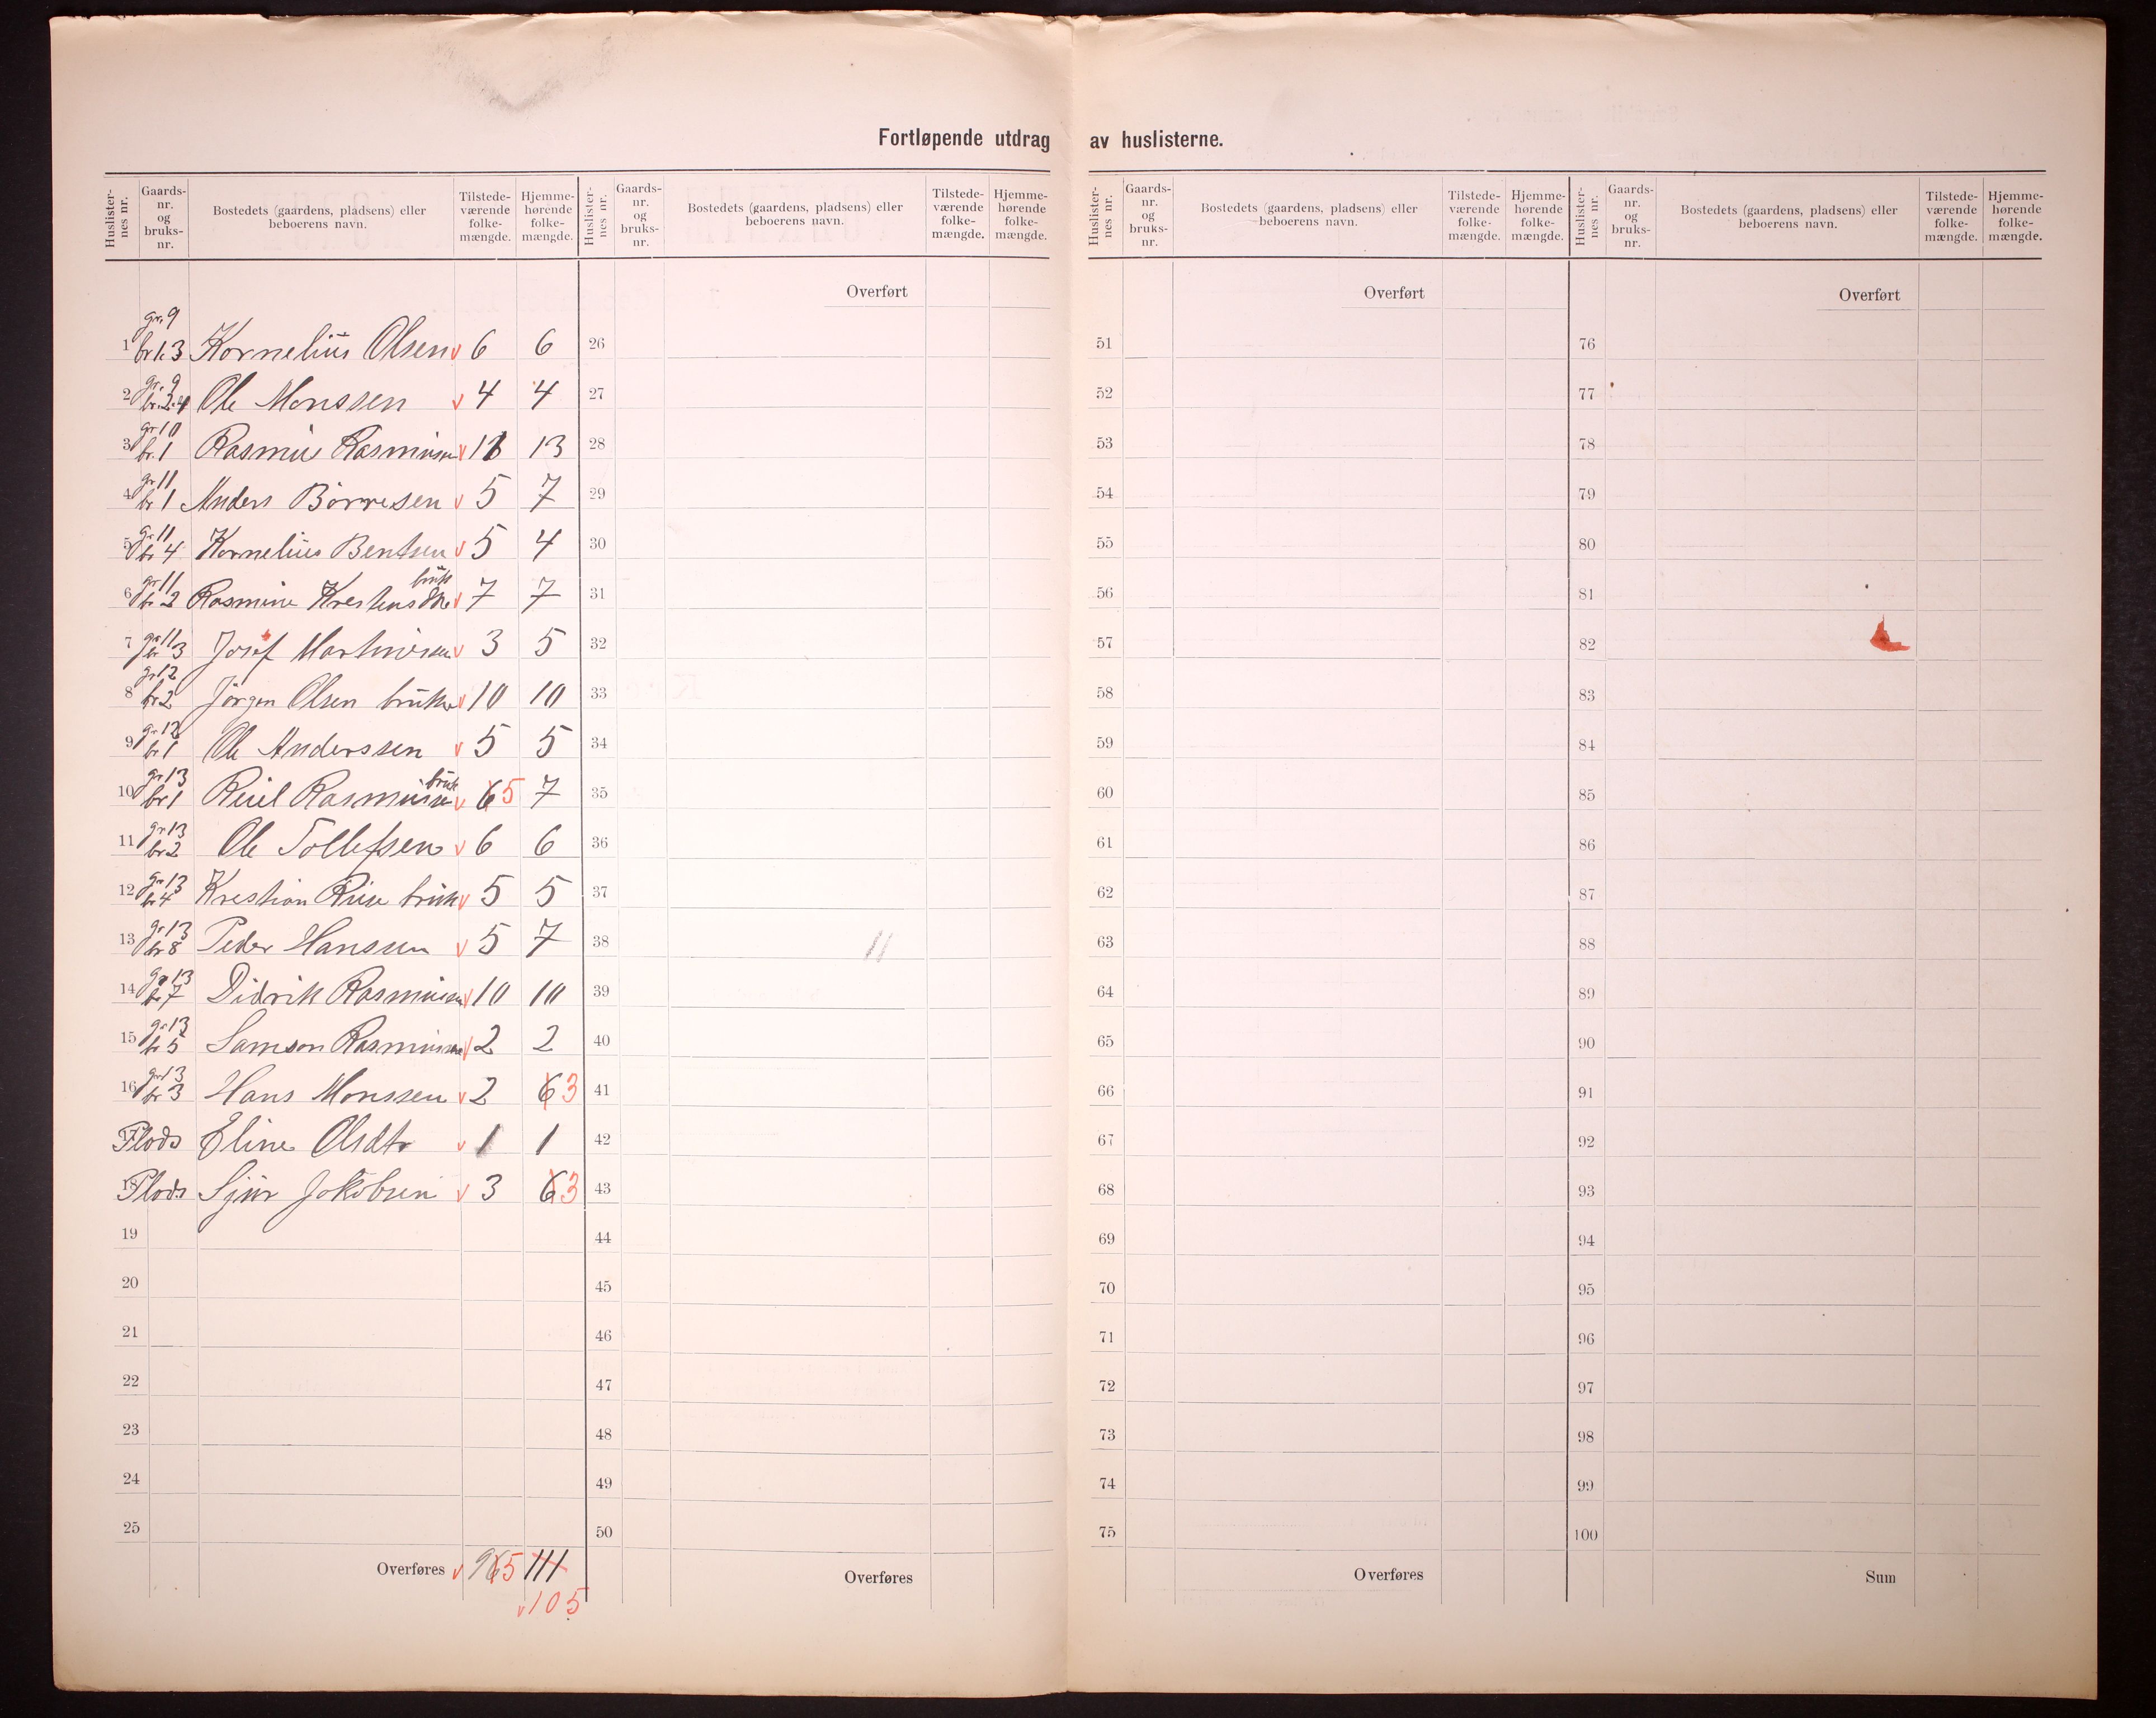 Fortløpende utdrag av huslisterne.
Huslister-nes nr. Gaards-nr. og bruks-nr. Bostedets (gaardens, pladsens) eller beboerens navn. Tilstede-værende folke-mængde. Hjemme-hørende folke-mængde. Huslister-nes nr. Gaards-nr. og bruks-nr. Bostedets (gaardens, pladsens) eller beboerens navn. Tilstede-værende folke-mængde. Hjemme-hørende folke-mængde. Huslister-nes nr. Gaards-nr. og bruks-nr. Bostedets (gaardens, pladsens) eller beboerens navn. Tilstede-værende folke-mængde. Hjemme-hørende folke-mængde. Huslister-nes nr. Gaards-nr. og bruks-nr. Bostedets (gaardens, pladsens) eller beboerens navn. Tilstede-værende folke-mængde. Hjemme-hørende folke-mængde.
Overført Overført Overført
1 gr. 9 br 1.3 Kornelius Olsen v 6 6 26 51 76
2 gr. 9 br. 2.4 Ole Monssen v 4 4 27 52 77
3 gr 10 br. 1 Rasmus Rasmussen v 13 28 53 78
4 gr 11 br 1 Anders Börresen v 5 7 29 54 79
5 gr 11 br 4 Kornelius Bentsen v 5 4 30 55 80
6 gr 11 br 2 Rasmine Krestens v 7 7 31 56 81
7 gr 11 br 3 Josef Martinesen v 3 5 32 57 82
8 gr 12 br 2 Jörgen Olsen bruker v 10 10 33 58 83
9 gr 12 br 1 Ole Anderssen v 5 5 34 59 84
10 gr 13 br 1 Rasmussen bruk v 6 5 7 35 60 85
11 gr 13 br 2 Ole Tollefsen v 6 6 36 61 86
12 gr 13 br 4 Krestian bruk v 5 5 37 62 87
13 gr 13 br 8 Peder Hanssen v 5 7 38 11 63 88
14 gr 13 br 7 Didrik Rasmussen v 10 10 39 64 89
15 gr 13 br 5 Samson Rasmussen v 2 2 40 65 90
16 gr 13 br 3 Hans Monssen v 2 6 3 41 66 91
17 Plads Eline Olsdtr v 1 1 42 67 92
18 Plads Sjur Jakobsen v 3 6 3 43 68 93
19 44 69 94
20 45 70 95
21 46 71 96
22 47 72 97
23 48 73 98
24 49 74 99
25 50 75 100
Overføres v 96 5 111 Overføres Overføres Sum
v 105